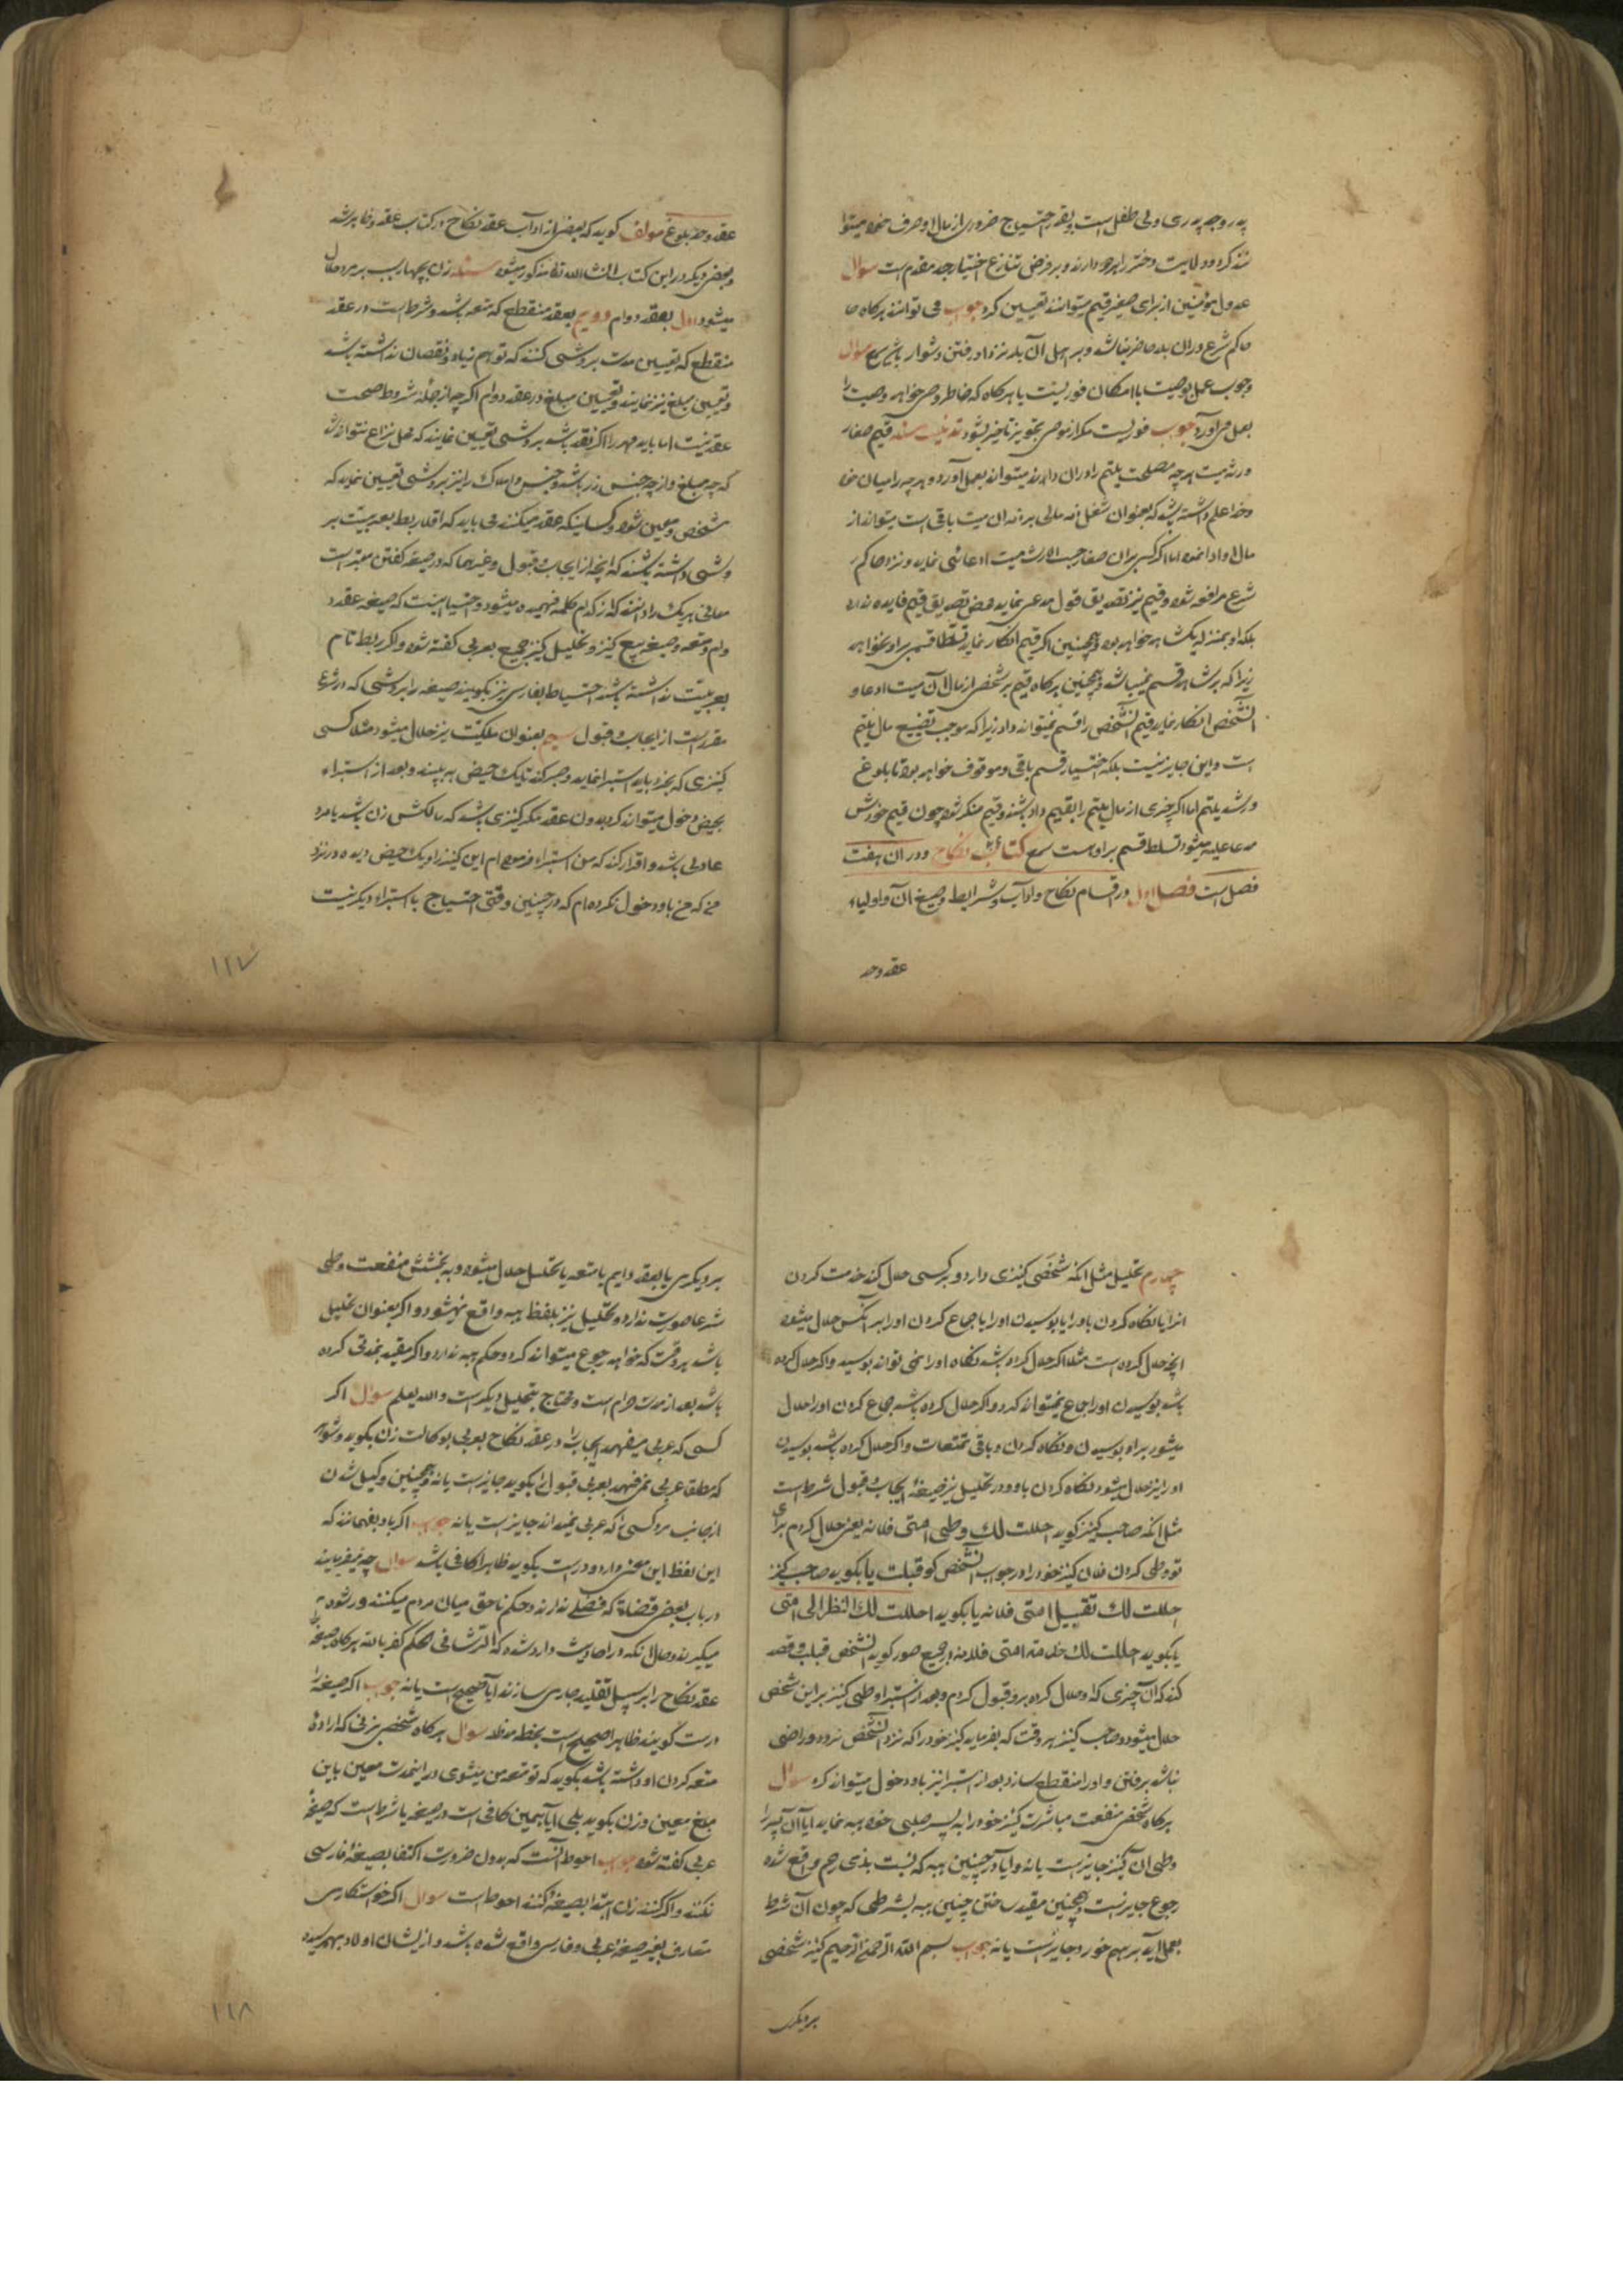 پدر و جد پدری ولی طفل است و بقدر احتیاج ضروری از مال او صرف خود میتوا
نند کرد و ولایت دختر را هر دو دارند و بر فرض تنازع اختیار جد مقدم است سوال
عدول مؤمنین از برای صغیر قیم میتوانند تعیین کرد جواب می توانند هرگاه حا
حاکم شرع در ان بلد حاضر نباشد و بر اهل آن بلد نزد او رفتن دشوار باشد سوال
وجوب عمل بوصیت با امکان فوریست یا هرگاه که خاطر وصی خواهد وصیت را
بعمل می آورد جواب فوریست مگر از موصی تجویز تاخیر بشود قیم صغار
ورثه میت هر چه مصلحت یتیم را در ان داند میتواند بعمل آورد و هر چه را میان خو
و خدا علم داشته باشد که بعنوان شغل ذمه مالی بر ذمه ان میت باقی است میتواند از
مال او ادا نمود اما اگر کسی بر ان صغار حسب الارث میت ادعائی نماید و نزد حاکم
شرع مرافعه شود و قیم نیز تصدیق قول مدعی نماید محض تصدیق قیم فایده ندارد
بلکه او بمنزله یک شاهد خواهد بود و همچنین اگر قیم انکار نماید تسلط قسم بر او نخواهد
زیرا که بر شاهد قسم نمیباشد و همچنین هرگاه قیم بر شخصی از مال آن میت ادعا و
آنشخص انکار نماید قیم آنشخص را قسم نمیتواند داد زیرا که موجب تضییع مال یتیم
است و این جایز نیست بلکه اختیار قسم باقی و موقوف خواهد بود تا بلوغ
و رشد یتیم اما اگر چیزی از مال یتیم را بقیم داده باشند و قیم منکر شود چون قیم خودش
مدعا علیه میشود تسلط قسم بر او هست کتاب نکاح و در ان هفت
فصل است فصل اول در اقسام نکاح و اداب و شرایط و صیغ آن و اولیاء
عقد و حد
عقد و حد بلوغ مولف گوید که بعضی از اداب عقد نکاح در کتاب عقود ظاهر شد
و بعضی دیگر در این کتاب انشاالله تعا مذکور میشود مسئله زن بچهار سبب بر مرد حلال
میشود اول بعقد دوام دویم بعقد منقطع که متعه باشد و شرط است در عقد
منقطع که تعیین مدت بروشی کنند که توهم زیاده و نقصان نداشته باشد
و تعیین مبلغ نیز نمایند و تعیین مبلغ در عقد دوام اگر چه از جمله شروط صحت
عقد نیست اما باید مهر را اگر نقد باشد بروشی تعیین نمایند که محل نزاع نتواند شد
که چه مبلغ و از چه جنس زر باشد و جنس و املاک را نیز بروشی تعیین نماید که
مشخص و معین شود و کسانیکه عقد میکنند می باید که اقلا ربط بعربیت بر
وشی داشته باشند که انچه از ایجاب و قبول و غیرها که در صیغه گفتن معتبر است
معانی هر یک را دانند که از کدام کلمه فهمیده میشود و احتیاط اینست که صیغه عقد د
وام و متعه و صیغه بیع کنیز و تحلیل کنیز جمیع بعربی گفته شود و اگر ربط تام
بعربیت نداشته باشند احتیاط بفارسی نیز بگویند صیغه را بروشی که در شرع
مقرر است از ایجاب و قبول سیم بعنوان ملکیت نیز حلال میشود مثلا کسی
کنیزی که بخرد باید استبرا نماید و صبر کند تا یک حیض به بیند و بعد از استبراء
بحیض دخول میتواند کرد بدون عقد مگر کنیزی باشد که مالکش زن باشد یا مرد
عادلی باشد و اقرار کند که من استبراء فرموده ام این کنیز را و یک حیض دیده در نزد
من که من باو دخول نکرده ام که در چنین وقتی احتیاج باستبراء دیگر نیست
١١٧
چهارم تحلیل مثل انکه شخصی کنیزی دارد و بر کسی حلال کند خدمت کردن
انرا یا نگاه کردن باو را یا بوسیدن او را یا جماع کردن او را بر آنکس حلال میشود
انچه حلال کرده است مثلا اگر حلال کرده باشد نگاه او را نمی تواند بوسید و اگر حلال کرده
باشد بوسیدن او را جماع نمیتواند کرد و اگر حلال کرده باشد جماع کردن او را حلال
میشود بر او بوسیدن و نگاه کردن و باقی تمتعات و اگر حلال کرده باشد بوسیدن
او را نیز حلال میشود نگاه کردن باو و در تحلیل نیز صیغهٔ ایجاب و قبول شرط است
مثل انکه صاحب کنیز گوید احللت لك وطی امتی فلانه یعنی حلال کردم برای
تو وطی کردن فلان کنیز خود را و در جواب آنشخص گوید قبلت یا بگوید صاحب کنیز
احللت لك تقبیل امتی فلانه یا بگوید احللت لك النظر الی امتی
یا بگوید احللت لك خدمة امتی فلانه و در جمیع صور گوید آنشخص قبلت و قصد
کند که آن چیزی که او حلال کرده بر و قبول کردم و بعد از استبرا وطی کنیز بر این شخص
حلال میشود و صاحب کنیز هر وقت که بفرماید کنیز خود را که نزد آنشخص نرود و راضی
نباشد برفتن و او را منقطع سازد بعد از استبرا نیز باو دخول میتواند کرد سوال
هرگاه شخصی منفعت مباشرت کنیز خود را به پسر صلبی خود هبه نماید ایا آن پسر را
وطی آن کنیز جایز است یا نه و ایا در چنین هبه که نسبت بذی رحم واقع شده
رجوع جایز است و همچنین مقید ساختن چنین هبه بشرطی که چون آن شرط
بعمل آید بر هم خورد جایز است یا نه جواب بسم الله الرحمن الرحیم کنیز شخصی
بر دیگری
بر دیگری یا بعقد دایم یا متعه یا تحلیل حلال میشود و به بخشش منفعت وطی
شرعا صورت ندارد و تحلیل نیز بلفظ هبه واقع نمیشود و اگر بعنوان تحلیل
باشد هر وقت که خواهد رجوع میتواند کرد و حکم هبه ندارد و اگر مقید بمدتی کرده
باشد بعد از مدت حرام است و محتاج بتحلیل دیگر است والله یعلم سوال اگر
کسی که عربی میفهمد ایجاب را در عقد نکاح بعربی بوکالت زن بگوید و شوهر
که مطلقا عربی نمی فهمد بعربی قبول را بگوید جایز است یا نه و همچنین وکیل شدن
از جانب مرد کسی را که عربی نمیداند جایز است یا نه جواب اگر باو بفهمانند که
این لفظ این معنی دارد و درست بگوید ظاهرا کافی باشد سوال چه میفرمایند
در باب بعضی قضاة که فضلی ندارند و حکم ناحق میان مردم میکنند و رشوه
میگیرند و حال آنکه در احادیث وارد شده که الرشا فی الحکم کفر بالله هرگاه صیغه
عقد نکاح را بر سبیل تقلید جاری سازند آیا صحیح است یا نه جواب اگر صیغه را
درست گویند ظاهرا صحیح است بخطه مد ظله سوال هرگاه شخصی بزنی که ارادهٔ
متعه کردن او داشته باشد بگوید که تو متعه من میشوی در اینمدت معین باین
مبلغ معین و زن بگوید بلی ایا همین کافی است در صیغه یا شرط است که صیغهٔ
عربی گفته شود جواب احوط آنست که بدون ضرورت اکتفا بصیغهٔ فارسی
نکنند و اگر کنند زن ابتدا بصیغه کند احوط است سوال اگر خواستکاری
متعارف بغیر صیغهٔ عربی و فارسی واقع شده باشد و از ایشان اولاد بهم رسیده
١١٨